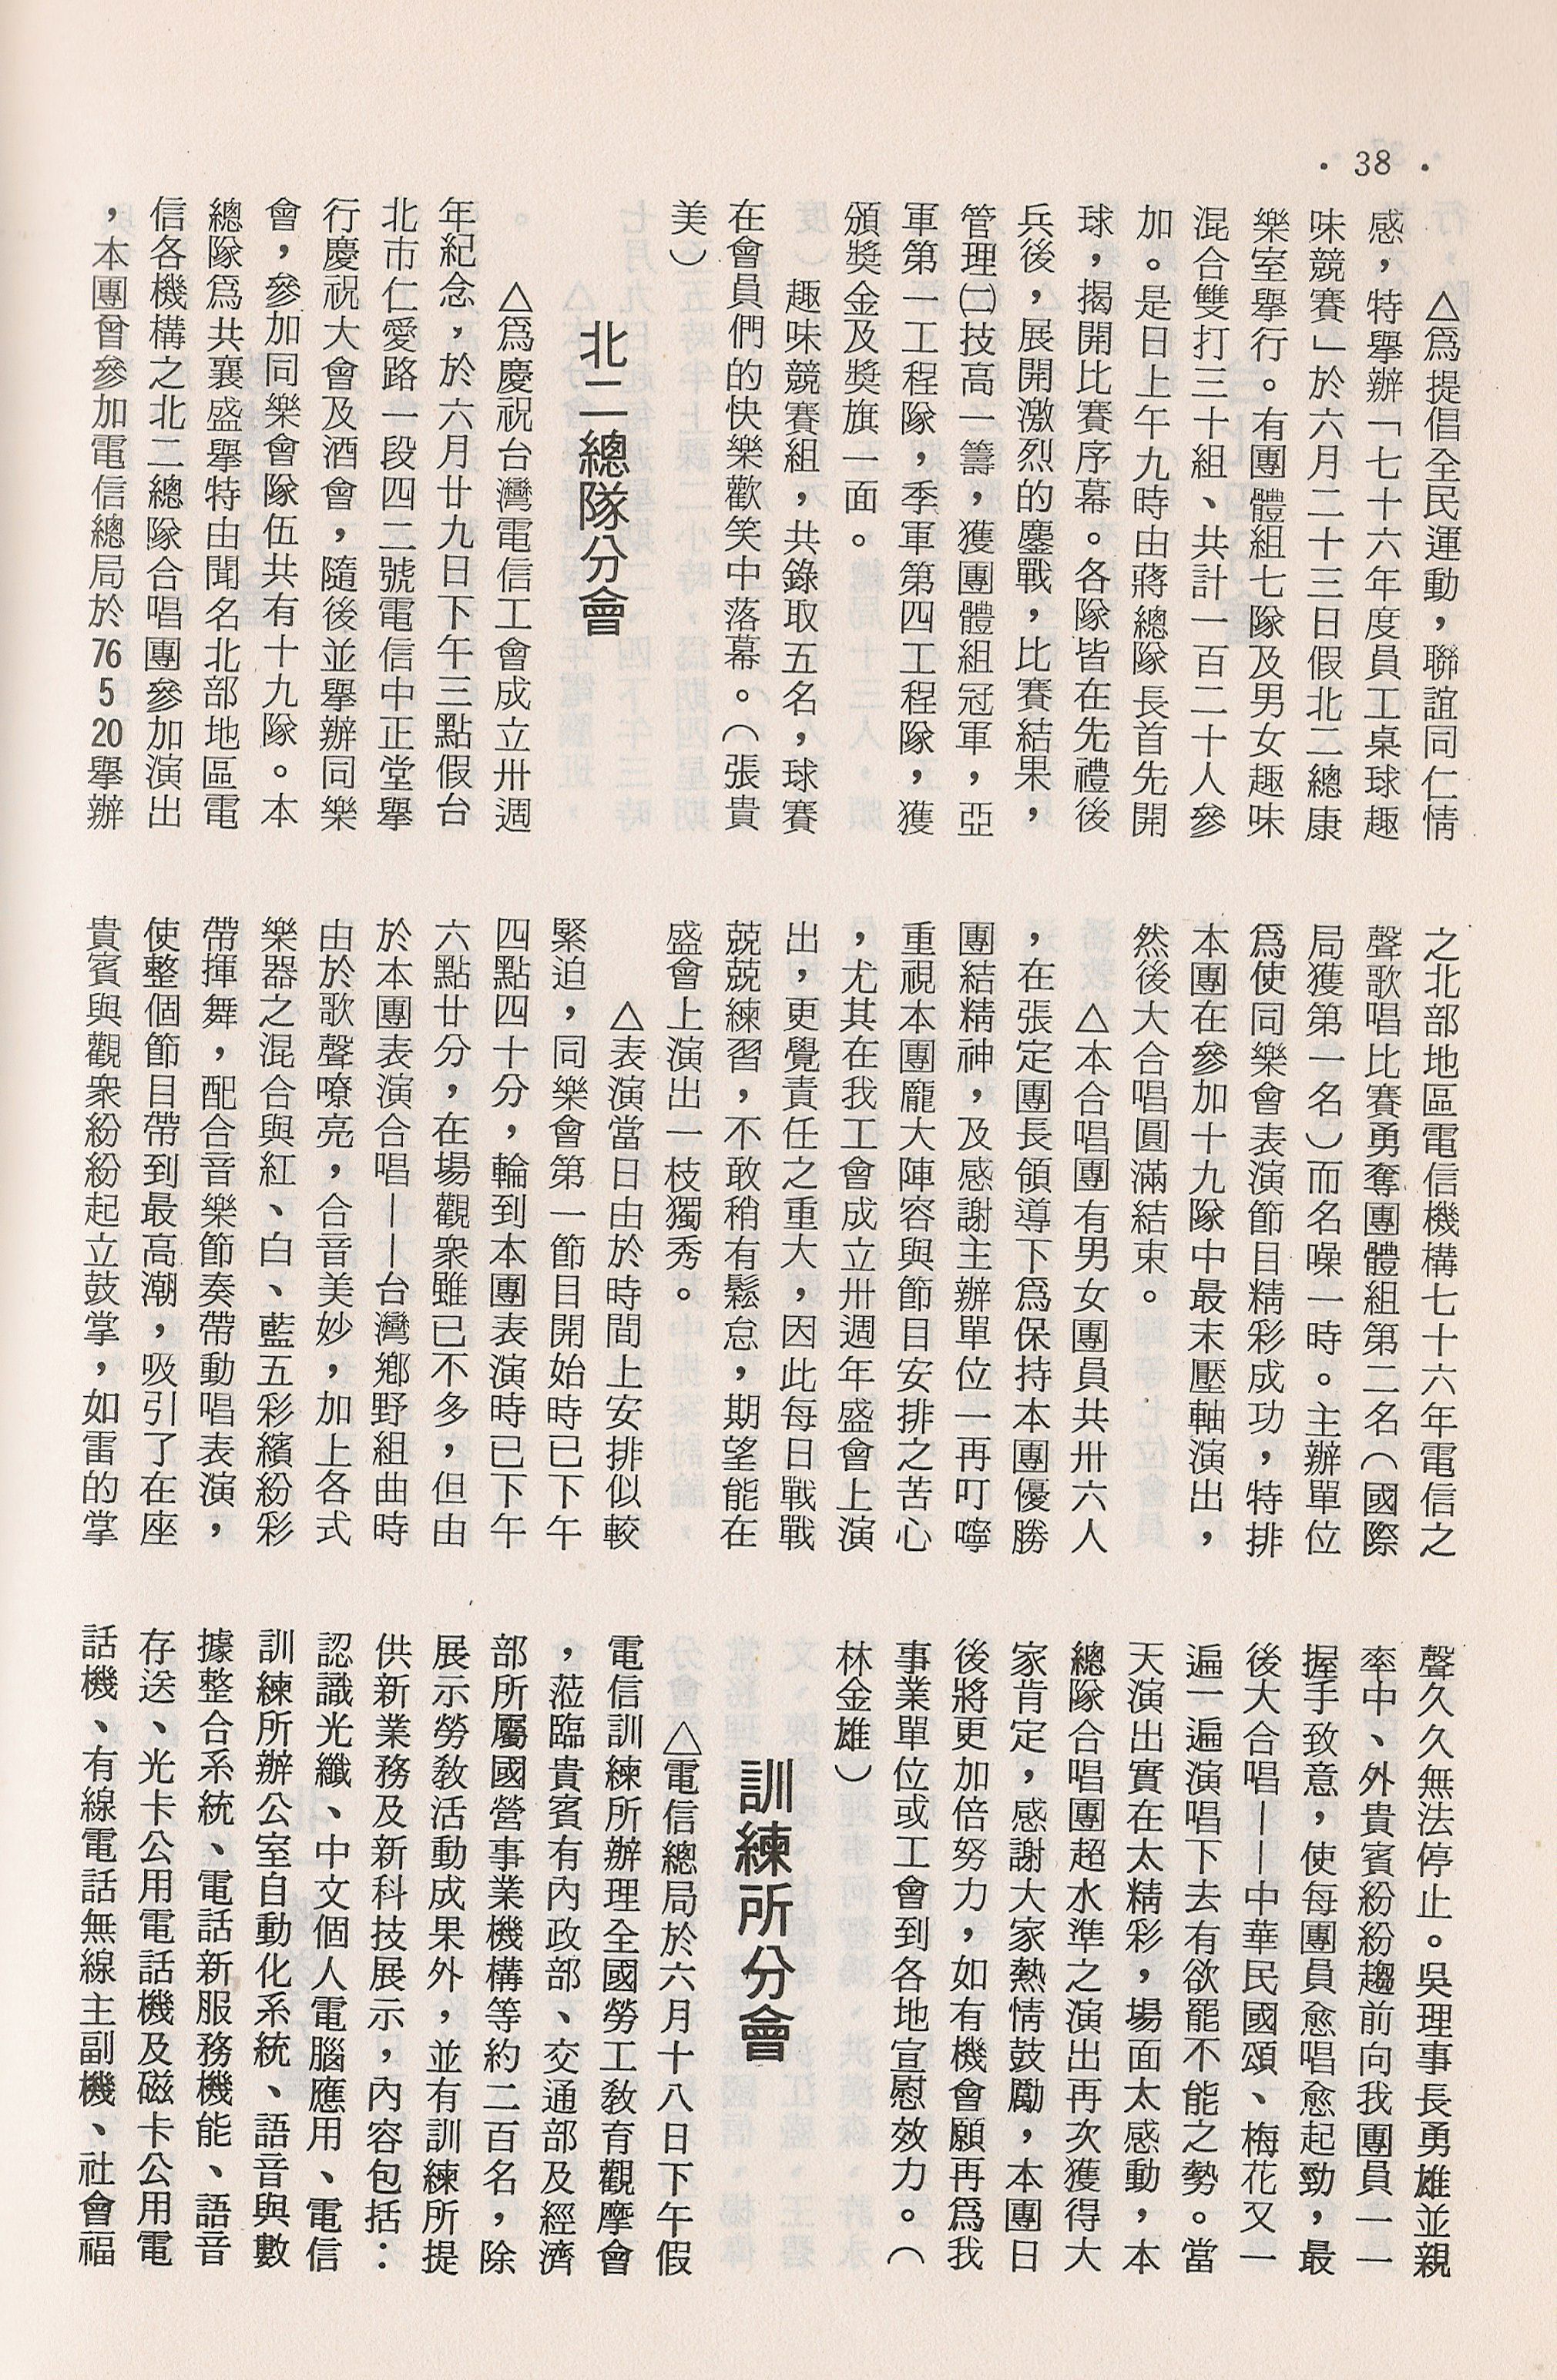 ・38・
△爲提倡全民運動，聯誼同仁情
感，特舉辦「七十六年度員工桌球趣
味競賽」於六月二十三日假北二總康
樂室舉行。有團體組七隊及男女趣味
混合雙打三十組、共計一百二十人參
加。是日上午九時由蔣總隊長首先開
球，揭開比賽序幕。各隊皆在先禮後
兵後，展開激烈的鏖戰，比賽結果，
管理㈡技高一籌，獲團體組冠軍，亞
軍第一工程隊，季軍第四工程隊，獲
頒獎金及獎旗一面。
趣味競賽組，共錄取五名，球賽
在會員們的快樂歡笑中落幕。（張貴
美）
北二總隊分會
△爲慶祝台灣電信工會成立卅週
年紀念，於六月廿九日下午三點假台
北市仁愛路一段四二號電信中正堂舉
行慶祝大會及酒會，隨後並舉辦同樂
會，參加同樂會隊伍共有十九隊。本
總隊爲共襄盛舉特由聞名北部地區電
信各機構之北二總隊合唱團參加演出
，本團曾參加電信總局於76 5 20舉辦
之北部地區電信機構七十六年電信之
聲歌唱比賽勇奪團體組第二名（國際
局獲第一名）而名噪一時。主辦單位
爲使同樂會表演節目精彩成功，特排
本團在參加十九隊中最末壓軸演出，
然後大合唱圓滿結束。
△本合唱團有男女團員共卅六人
，在張定團長領導下爲保持本團優勝
團結精神，及感謝主辦單位一再叮嚀
重視本團龐大陣容與節目安排之苦心
，尤其在我工會成立卅週年盛會上演
出，更覺責任之重大，因此每日戰戰
兢兢練習，不敢稍有鬆怠，期望能在
盛會上演出一枝獨秀。
△表演當日由於時間上安排似較
緊迫，同樂會第一節目開始時已下午
四點四十分，輪到本團表演時已下午
六點廿分，在場觀衆雖已不多，但由
於本團表演合唱——台灣鄉野組曲時
由於歌聲嘹亮，合音美妙，加上各式
樂器之混合與紅、白、藍五彩繽紛彩
帶揮舞，配合音樂節奏帶動唱表演，
使整個節目帶到最高潮，吸引了在座
貴賓與觀衆紛紛起立鼓掌，如雷的掌
聲久久無法停止。吳理事長勇雄並親
率中、外貴賓紛紛趨前向我團員一一
握手致意，使每團員愈唱愈起勁，最
後大合唱——中華民國頌、梅花又一
遍一遍演唱下去有欲罷不能之勢。當
天演出實在太精彩，場面太感動，本
總隊合唱團超水準之演出再次獲得大
家肯定，感謝大家熱情鼓勵，本團日
後將更加倍努力，如有機會願再爲我
事業單位或工會到各地宣慰效力。（
林金雄）
訓練所分會
△電信總局於六月十八日下午假
電信訓練所辦理全國勞工敎育觀摩會
，蒞臨貴賓有內政部、交通部及經濟
部所屬國營事業機構等約二百名，除
展示勞敎活動成果外，並有訓練所提
供新業務及新科技展示，內容包括：
認識光纖、中文個人電腦應用、電信
訓練所辦公室自動化系統、語音與數
據整合系統、電話新服務機能、語音
存送、光卡公用電話機及磁卡公用電
話機、有線電話無線主副機、社會福